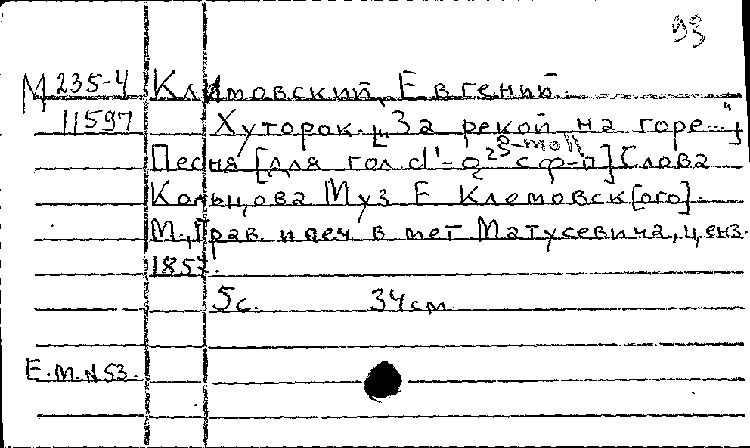 93
М 235-4 Климовский, Евгений.
11597 Хуторок. [„За рекой на горе..."]
g-moll
Песня [для гол. d¹-g² с ф-п] Слова
Кольцова Муз Е Клемовск[ого].
М., Грав. и печ в мет Матусевича, ценз.
1857.
5с. 34см
Е.М.N53.